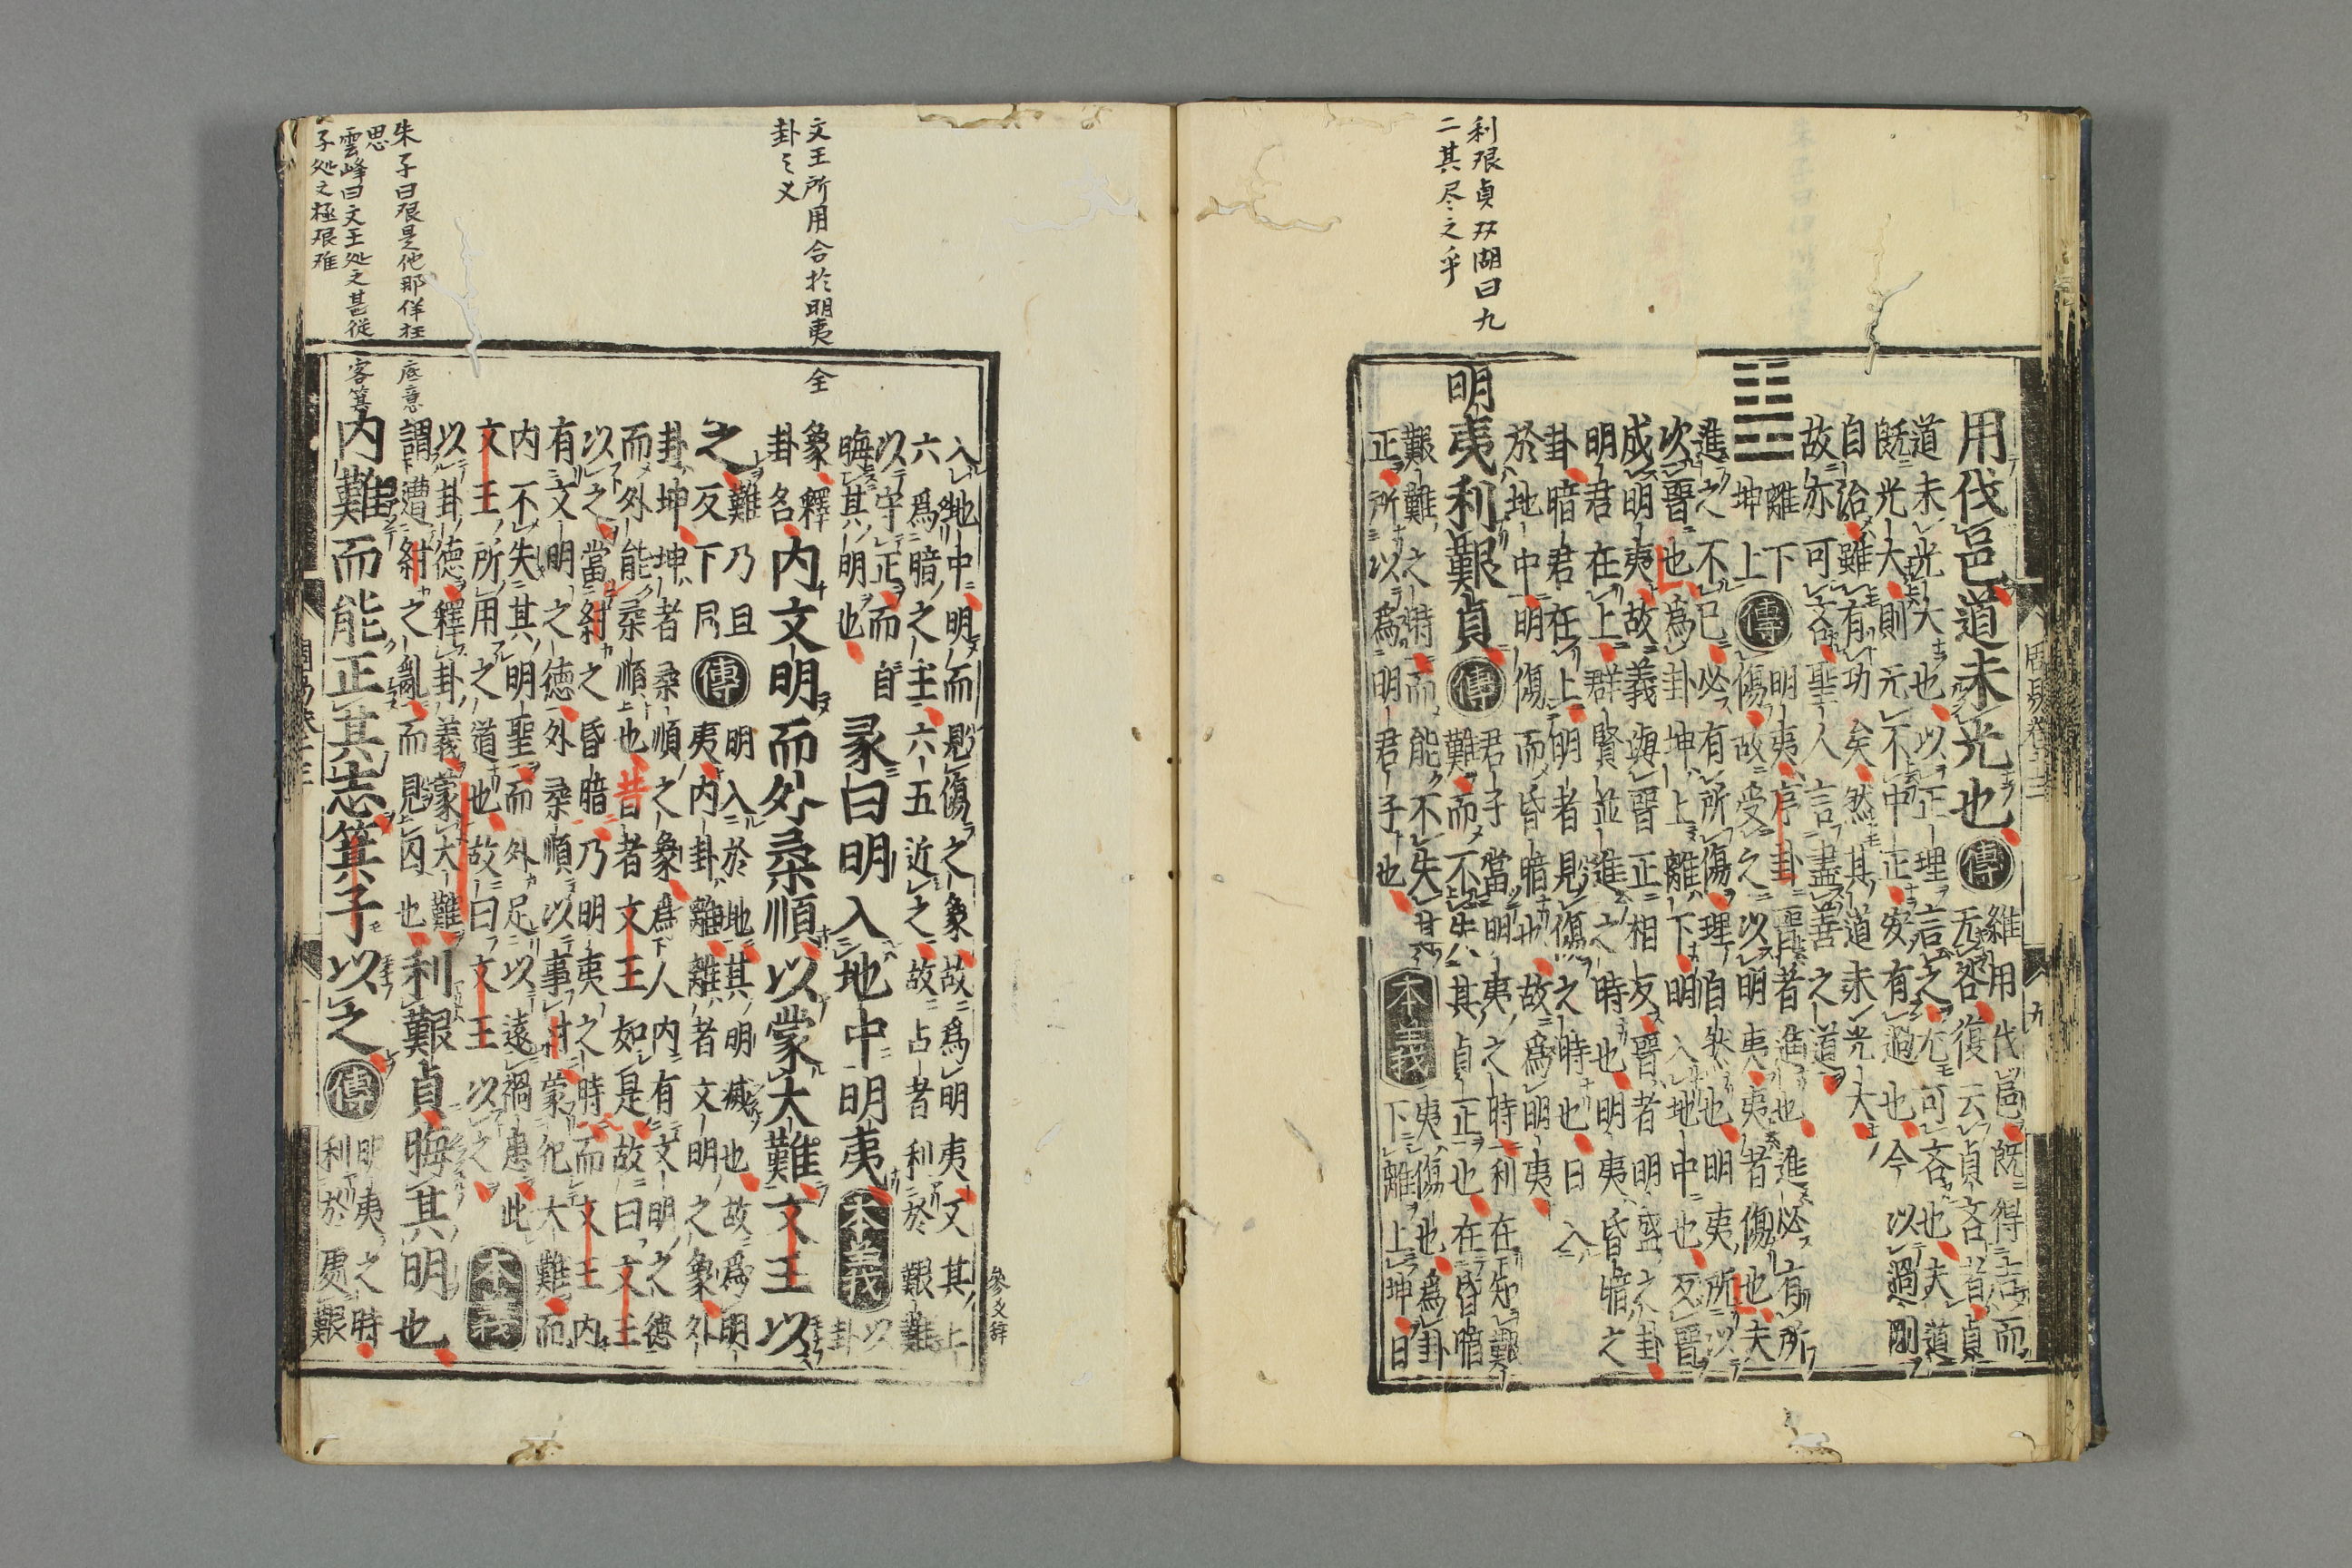 利艰貞双湖曰九
二其尽之乎
用伐邑道未光也傳雖用伐邑既得吉而
无咎復云貞吝者貞
道未光大也以正理言之尤可吝也夫道
既光大則元不中正安有過也今以過剛
自治雖有功矣然其道未光大
故亦可吝聖人言盡善之道
離下
坤上傳明夷序卦晉者進也進必有所
傷故受之以明夷夷者傷也夫
進之不已必有所傷理自然也明夷所以
次晉也為卦坤上離下明入地中也反晉
成明夷故義與晉正相反晉者明盛之卦
明君在上群賢並進之時也明夷昏暗之
卦暗君在上明者見傷之時也日入
於地中明傷而昏暗也故為明夷
明夷利艱貞傳君子當明夷之時利在知艱
難而不失其貞正也在昏暗
艱難之時而能不失其
正所以為明君子也本義夷傷也為卦
下離上坤日
周易卷十二
九
文王所用合於明夷全
卦之义
朱子曰艰是他那佯狂底意
思
雲峰曰文王処之甚従容箕
子処之極艰难
參文辞
入地中明而見傷之象故為明夷又其上
六為暗之主六五近之故占者利於艱難
以守正而自
晦其明也彖曰明入地中明夷本義以
卦
象釋
卦名内文明而外柔順以蒙大難文王以
之難乃且
反下同傳明入於地其明滅也故為明
夷内卦離離者文明之象外
卦坤坤者柔順之象為人内有文明之德
而外能柔順也昔者文王如是故曰文王
以之當紂之昏暗乃明夷之時而文王内
有文明之徳外柔順以事紂蒙犯大難而
内不失其明聖而外足以遠禍患此
文王所用之道也故曰文王以之本義
以卦徳釋卦義蒙大難
謂遭紂之亂而見囚也利艱貞晦其明也
内難而能正其志箕子以之傳明夷之時
利於處艱